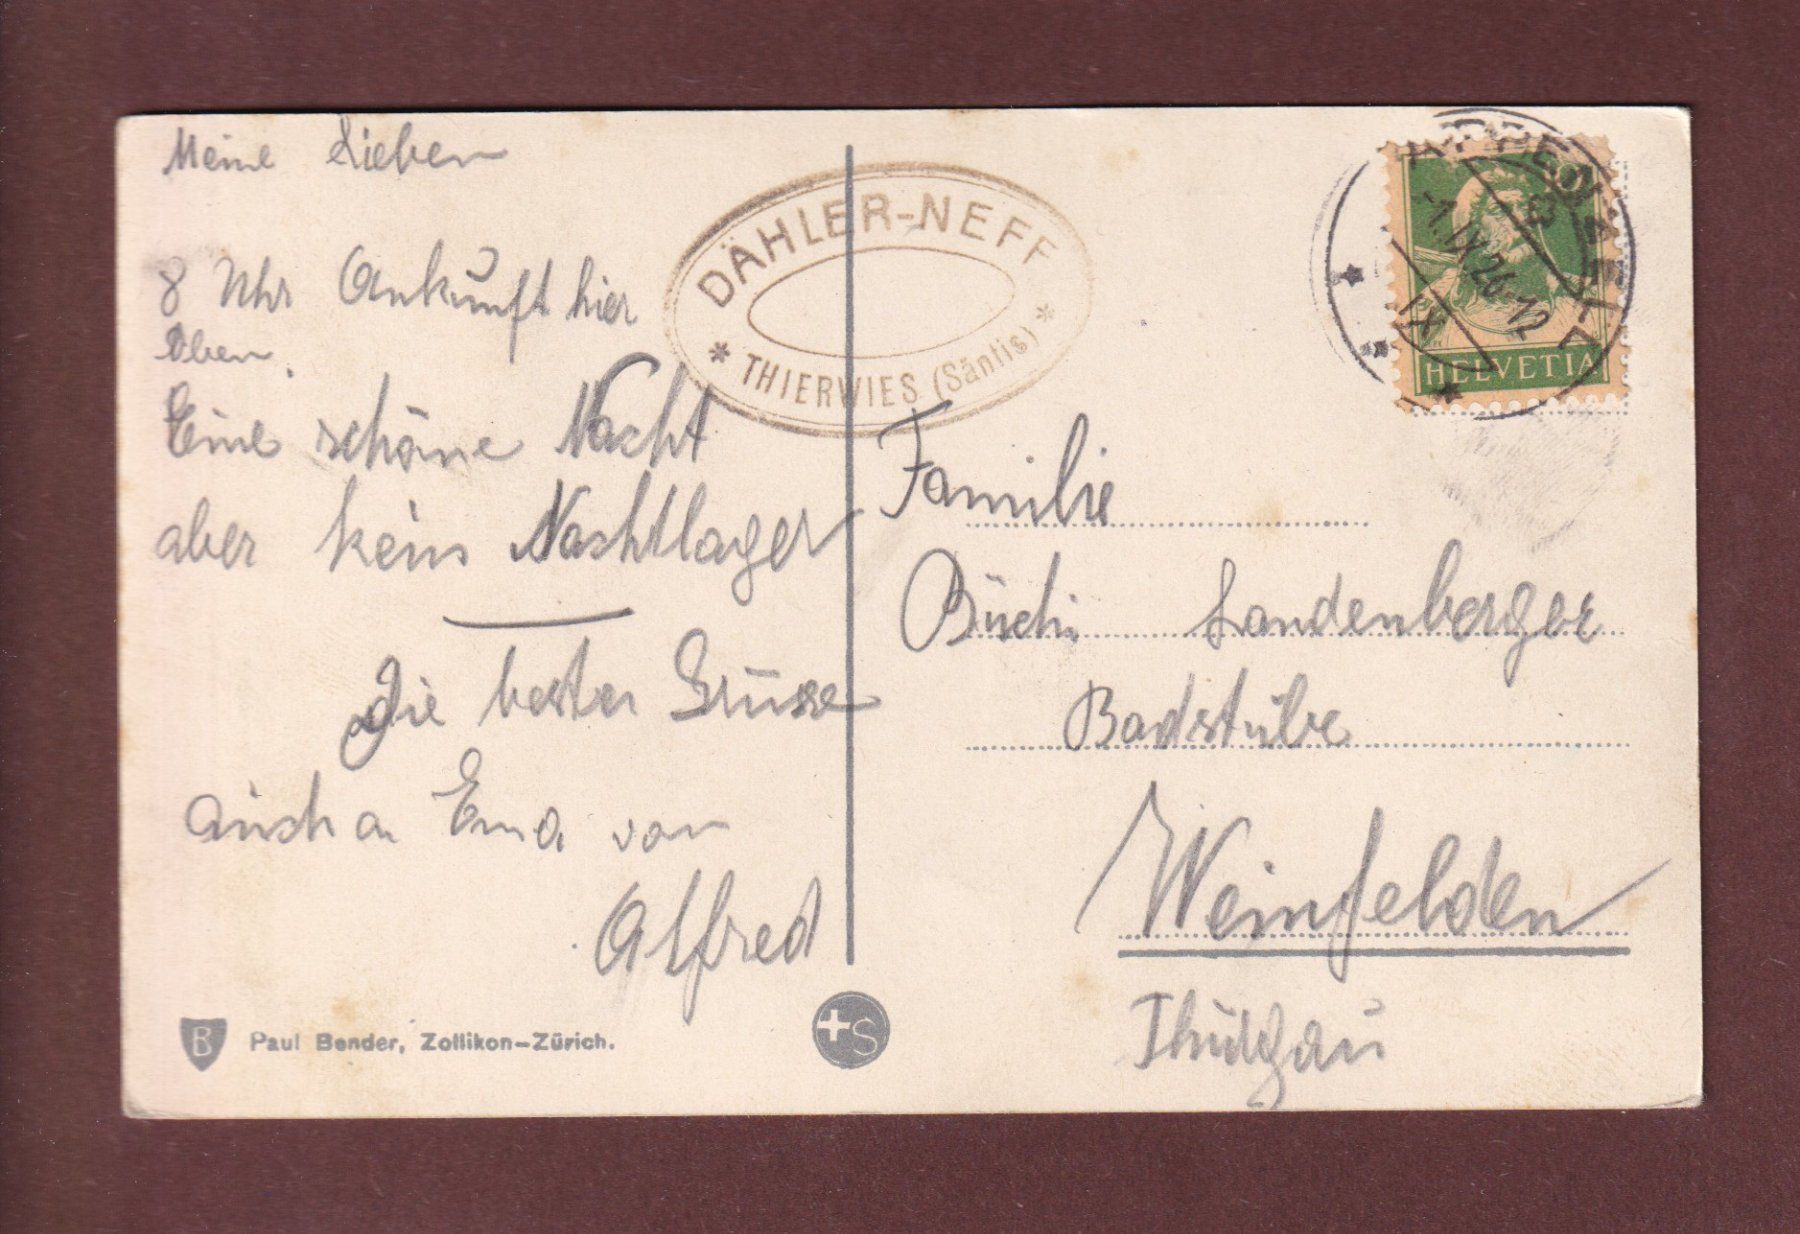 Meine Lieben
8 Uhr Ankunft hier
Oben.
Eine schöne Nacht
aber kein Nachtlager
Die besten Grüsse
auch an Ema von
Alfred
Paul Bender, Zollikon-Zürich.
B
+S
DÄHLER-NEFF
* THIERWIES (Säntis) *
APPENZELL
-1.IX.26-12
IX
HELVETIA
Familie
Büchi Landenberger
Badstube
Weinfelden
Thurgau